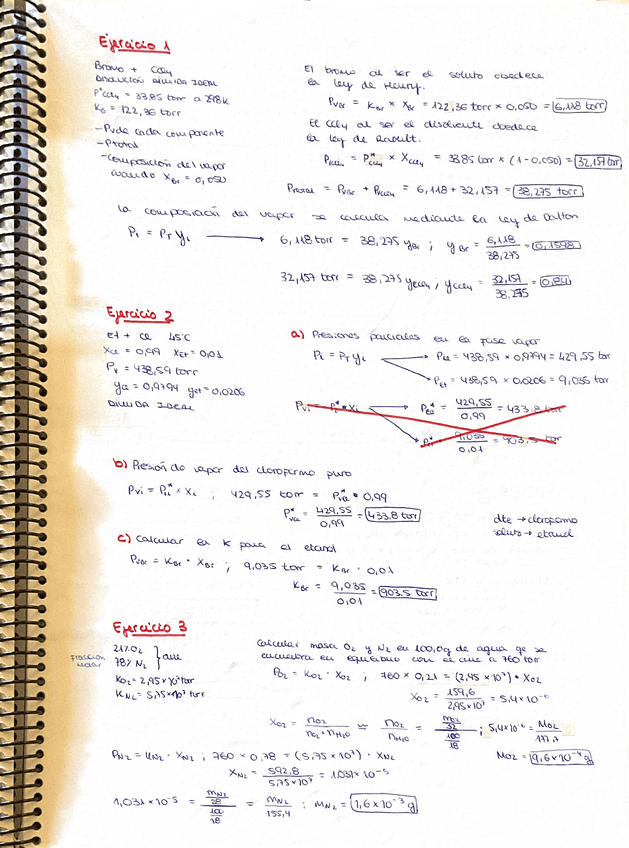 Ejercicio 1
Bromo + CCl4
Disolución diluida ideal
P*CCl4 = 33,85 torr a 298K
KB = 122,36 torr
- Pv de cada componente
- Ptotal
- Composición del vapor
cuando XBr = 0,050
El bromo al ser el soluto obedece
la ley de Henry.
PVBr = KBr × XBr = 122,36 torr × 0,050 = 6,118 torr
El CCl4 al ser el disolvente obedece
la ley de Raoult.
PCCl4 = P*CCl4 × XCCl4 = 33,85 torr × (1-0,050) = 32,157 torr
PTOTAL = PVBr + PCCl4 = 6,118 + 32,157 = 38,275 torr
La composición del vapor se calcula mediante la ley de Dalton
Pi = PT yi → 6,118 torr = 38,275 yBr ; yBr = 6,118 / 38,275 = 0,1598
32,157 torr = 38,275 yCCl4 ; yCCl4 = 32,157 / 38,275 = 0,84
Ejercicio 2
Et + Cl 45°C
XCl = 0,99 XEt = 0,01
PV = 438,59 torr
yCl = 0,9794 yEt = 0,0206
DILUIDA IDEAL
a) Presiones parciales en la fase vapor
Pi = PT yi → PCl = 438,59 × 0,9794 = 429,55 torr
→ PEt = 438,59 × 0,0206 = 9,035 torr
PVi = Pi* × Xi → PCl* = 429,55 / 0,99 = 433,8 torr
9,035 / 0,01 = 903,5 torr
b) Presión de vapor del cloroformo puro
PVi = Pi* × Xi ; 429,55 torr = P*VCl · 0,99
P*VCl = 429,55 / 0,99 = 433.8 torr
dte → cloroformo
soluto → etanol
c) Calcular la K para el etanol
PVBr = KBr · XBr ; 9,035 torr = KBr · 0,01
KBr = 9,035 / 0,01 = 903.5 torr
Ejercicio 3
Fracción molar
21% O2
78% N2 } aire
KO2 = 2,95×10⁷ torr
KN2 = 5,75×10⁷ torr
Calcular masa O2 y N2 en 100,0g de agua qe se
encuentra en equilibrio con el aire a 760 torr
PO2 = KO2 · XO2 ; 760 × 0,21 = (2,95 × 10⁷) · XO2
XO2 = 159,6 / 2,95×10⁷ = 5,4×10⁻⁶
XO2 = nO2 / nO2 + nH2O ≈ nO2 / nH2O = mO2/32 / 100/18 ; 5,4×10⁻⁶ = MO2 / 177,7
PN2 = KN2 · XN2 ; 760 × 0,78 = (5,75 × 10⁷) · XN2
MO2 = 9,6×10⁻⁴ g
XN2 = 592,8 / 5,75×10⁷ = 1,031×10⁻⁵
1,031×10⁻⁵ = mN2/28 / 100/18 = mN2 / 155,4 ; mN2 = 1,6×10⁻³ g